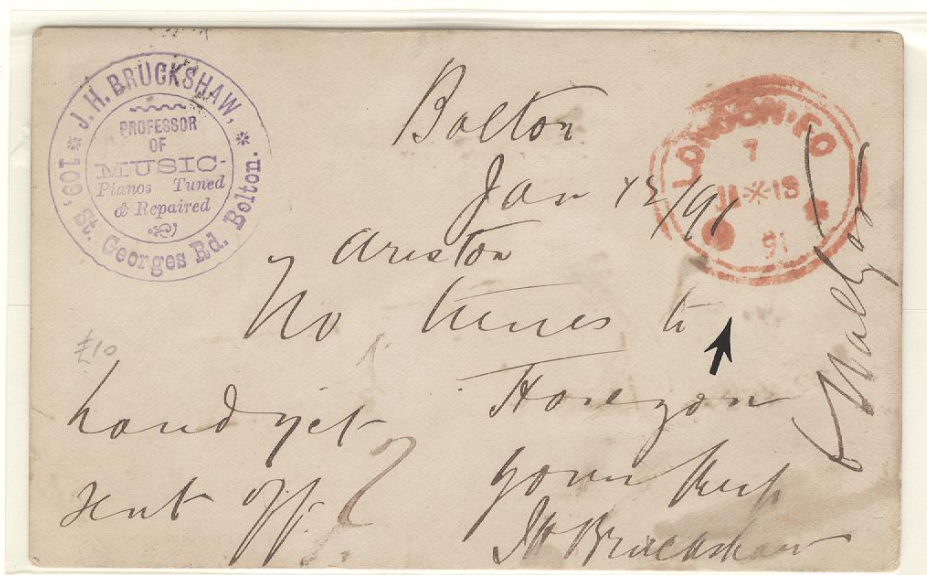 J. H. BRUCKSHAW,
PROFESSOR
OF
MUSIC
Pianos Tuned
& Repaired
109, St. Georges Rd. Bolton.
LONDON · F.O
7
JA 13
91
Bolton
Jan 12/91
Ariston
No tunes to
hand yet
sent off ?
Have you
yours
J H Bruckshaw
£10